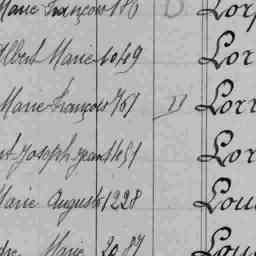 Marie François 176 D Lorp
Albert Marie 1049 Lor
Marie François 761 D Lorr
Joseph Jean 1451 Lor
Marie Auguste 1228 Lou
Marie 2087 Lou